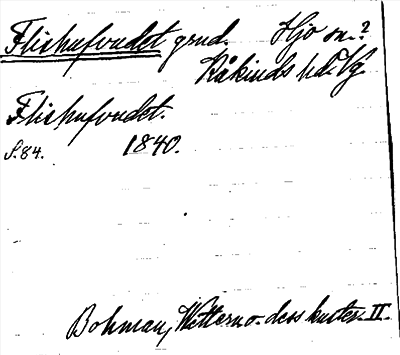 Flishufvudet grund. Hjo sn.?
Kåkinds hd. Vg.
Flishufvudet.
S. 84. 1840.
Bohman, Wettern o. dess kuster. II.